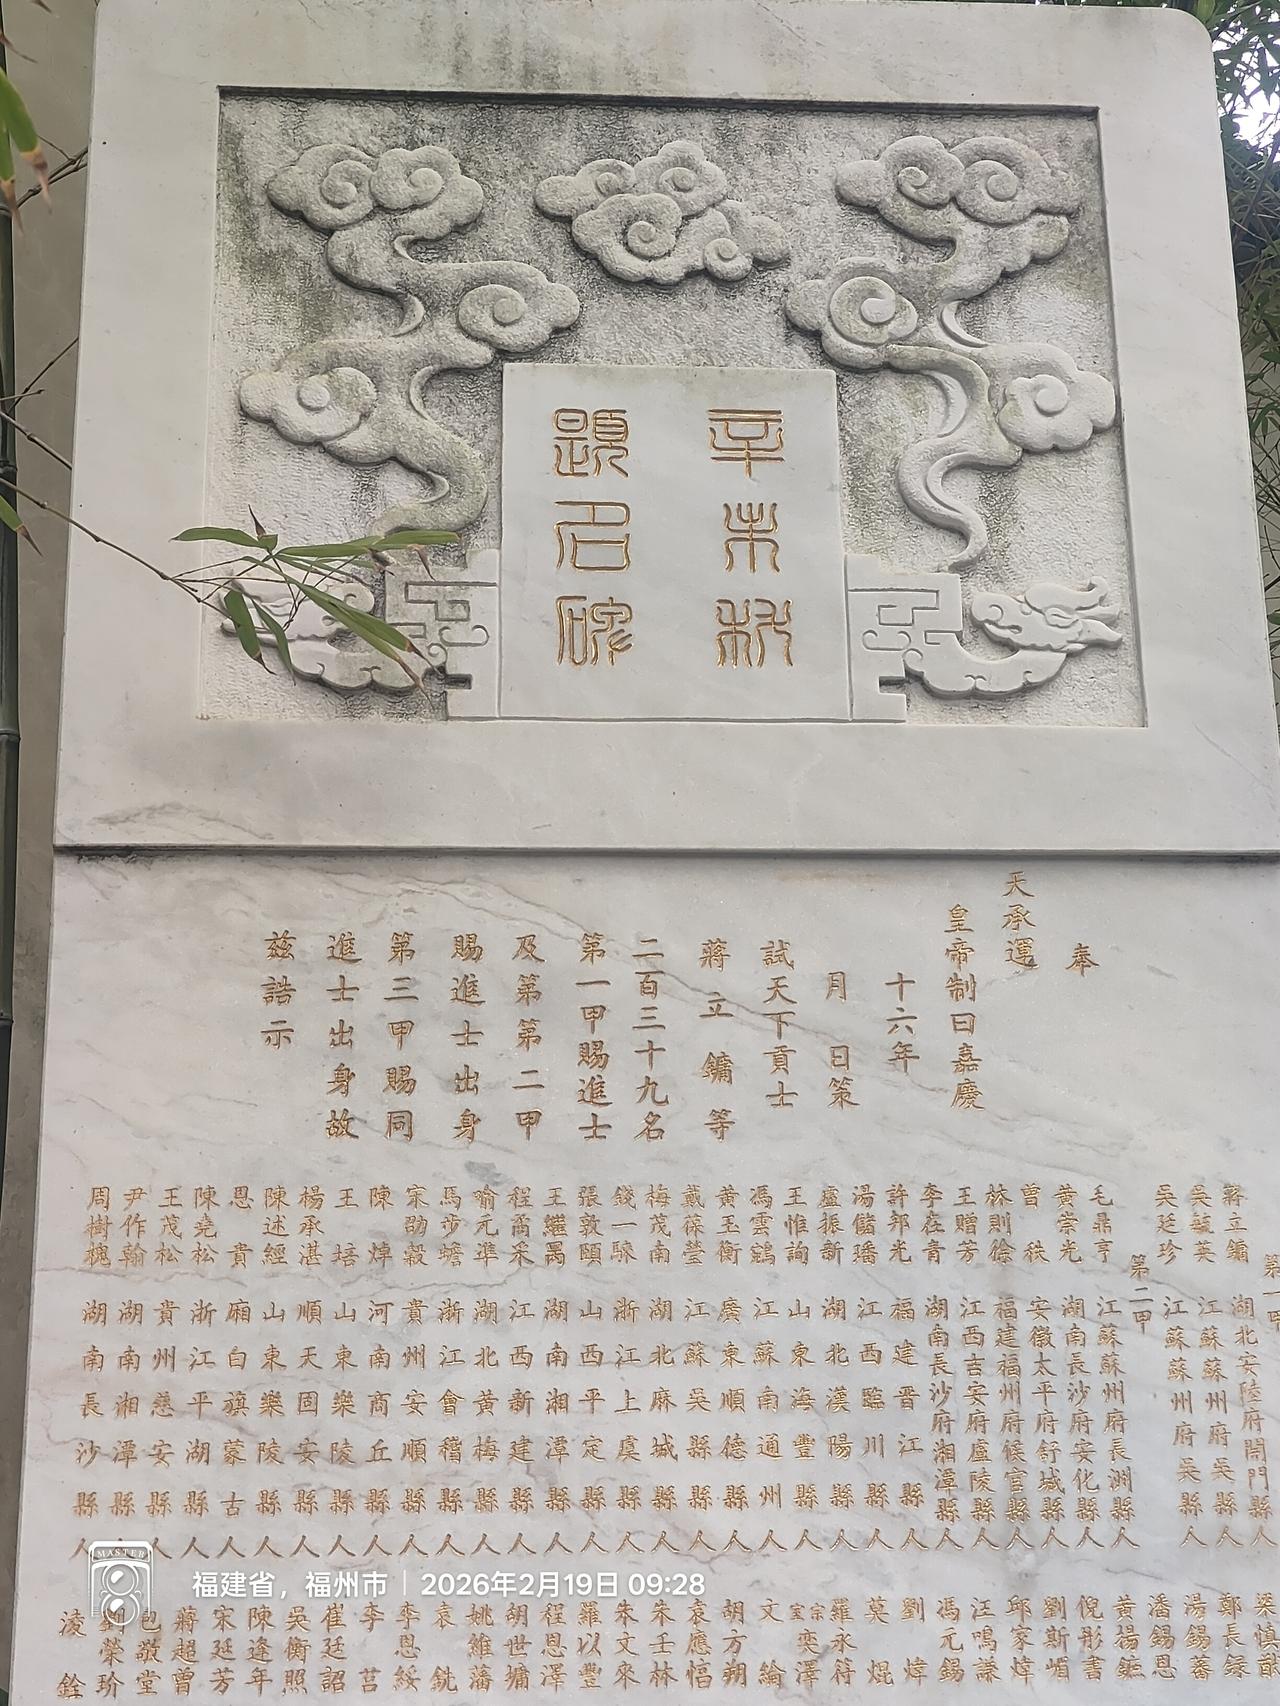 辛未科
題名碑
奉
天承運
皇帝制曰嘉慶
十六年
月 日策
試天下貢士
蔣立鏞等
二百三十九名
第一甲賜進士
及第第二甲
賜進士出身
第三甲賜同
進士出身故
茲誥示
第一甲
蔣立鏞 湖北安陸府門縣人
吳毓英 江蘇蘇州府吳縣人
吳廷珍 江蘇蘇州府吳縣人
第二甲
毛鼎亨 江蘇蘇州府長洲縣人
黃崇光 湖南長沙府安化縣人
曾秩 安徽太平府舒城縣人
林則徐 福建福州府候官縣人
王贈芳 江西吉安府廬陵縣人
李在青 湖南長沙府湘潭縣人
許邦光 福建晉江縣人
湯儲璠 江西臨川縣人
盧振新 湖北漢陽縣人
王惟詢 山東海豐縣人
馮雲鵷 江蘇南通州人
黃玉衡 廣東順德縣人
戴葆瑩 江蘇吳縣人
梅茂南 湖北麻城縣人
錢一騋 浙江上虞縣人
張敦頤 山西平定縣人
王繼 湖南湘潭縣人
程矞采 江西新建縣人
喻元準 湖北黃梅縣人
馬步蟾 浙江會稽縣人
宋劭穀 貴州安順縣人
陳焯 河南商丘縣人
王培 山東樂陵縣人
楊承湛 順天固安縣人
陳述經 山東樂陵縣人
恩貴 廂白旗蒙古人
陳堯松 浙江平湖縣人
王茂松 貴州慈安縣人
尹作翰 湖南湘潭縣人
周樹槐 湖南長沙縣人
梁慎猷
鄭長錄
湯錫蕃
潘錫恩
黃楊鑣
倪彤書
劉斯嵋
邱家煒
汪鳴謙
馮元錫
劉煒
莫焜
羅永符
宗室奕澤
文綸
胡方朔
袁應
朱壬林
朱文來
羅以豐
程恩澤
胡世墉
姚維藩
袁銑
李恩綏
李莒
崔廷詔
吳衡照
陳逢年
宋廷芳
蔣超曾
包敬堂
劉榮玠
淩銓
MASTER
福建省，福州市 | 2026年2月19日 09:28